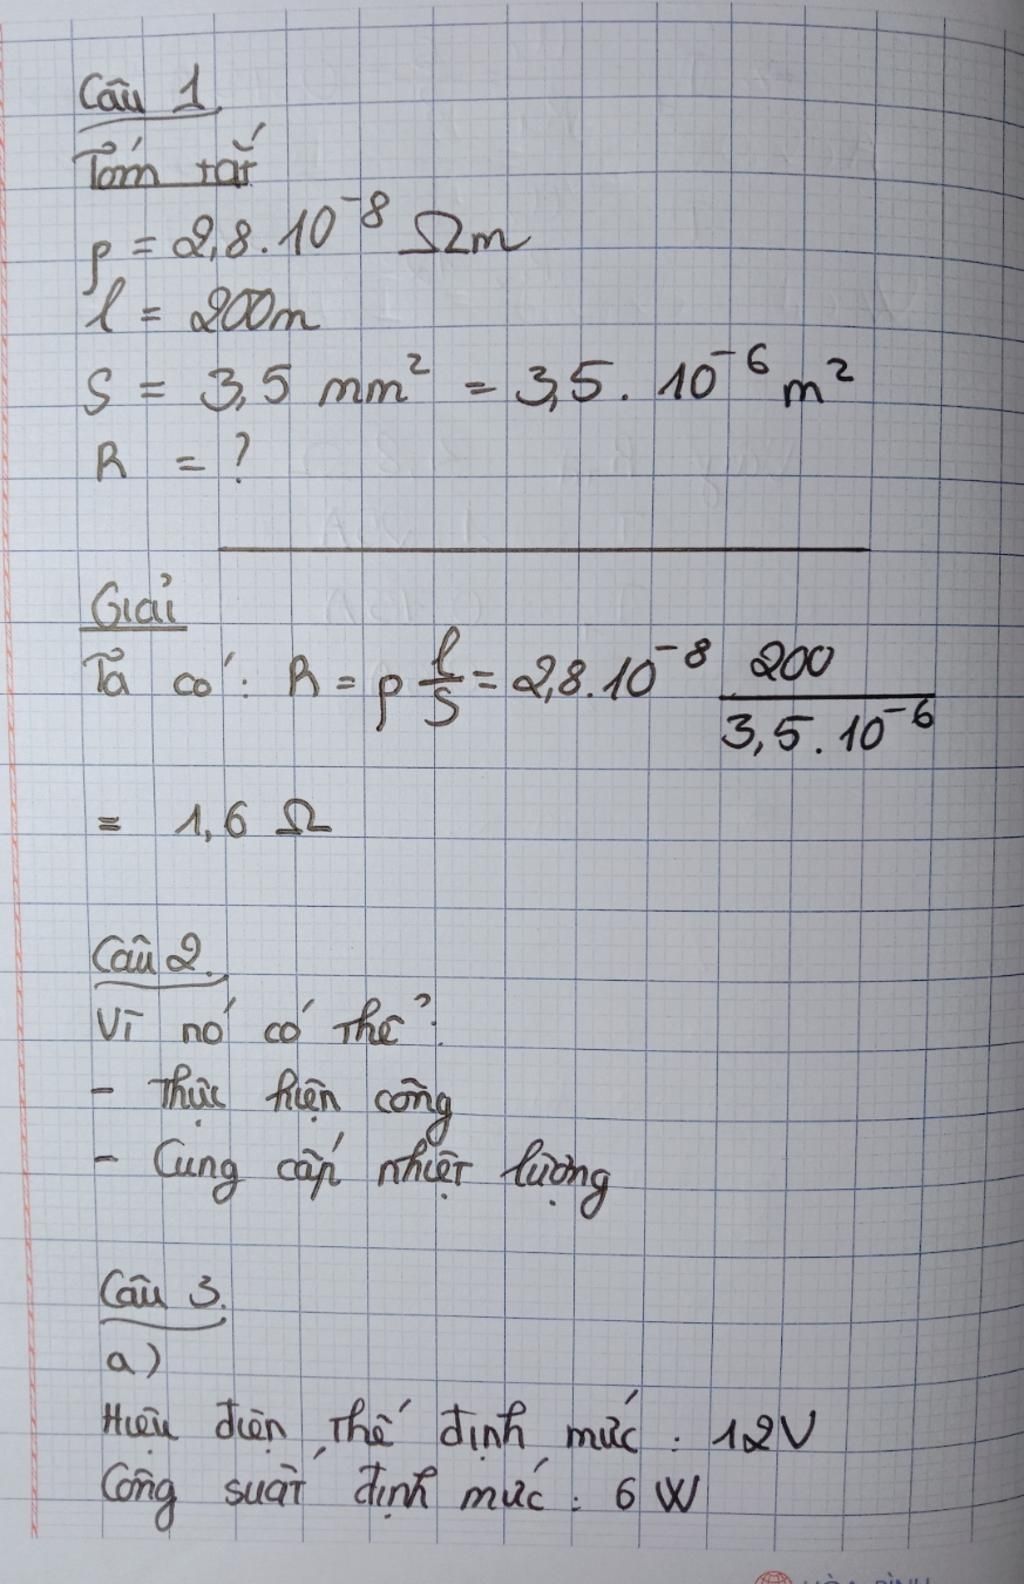 Câu 1.
Tóm tắt
ρ = 2,8.10⁻⁸ Ωm
l = 200m
S = 3,5 mm² = 3,5. 10⁻⁶ m²
R = ?
Giải
Ta có: R = ρ l/S = 2,8.10⁻⁸ 200/3,5.10⁻⁶
= 1,6 Ω
Câu 2.
Vì nó có thể:
- Thực hiện công
- Cung cấp nhiệt lượng
Câu 3.
a)
Hiệu điện thế định mức : 12V
Công suất định mức : 6 W